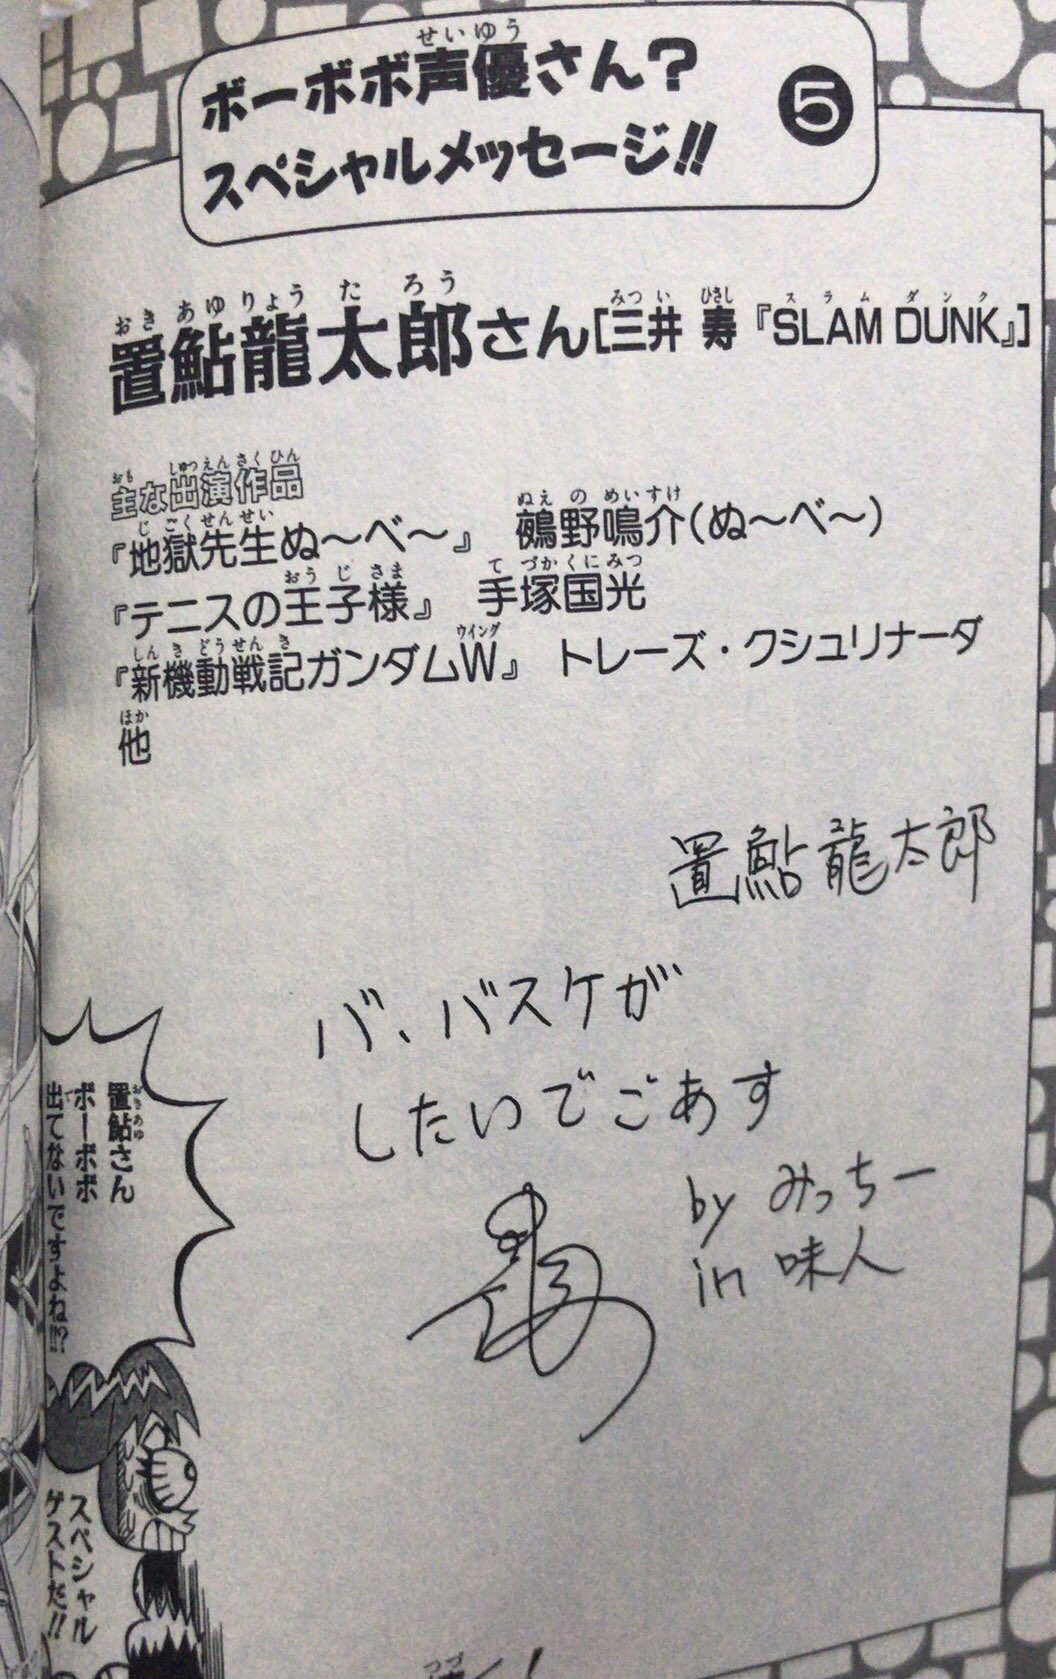 ボーボボ声優さん？
スペシャルメッセージ!!
5
置鮎龍太郎さん[三井 寿『SLAM DUNK』]
主な出演作品
『地獄先生ぬ〜べ〜』 鵺野鳴介(ぬ〜べ〜)
『テニスの王子様』 手塚国光
『新機動戦記ガンダムW』 トレーズ・クシュリナーダ
他
置鮎龍太郎
バ、バスケが
したいでごあす
by みっちー
in 味人
置鮎さん
ボーボボ
出てないですよね!!?
スペシャル
ゲストだ!!